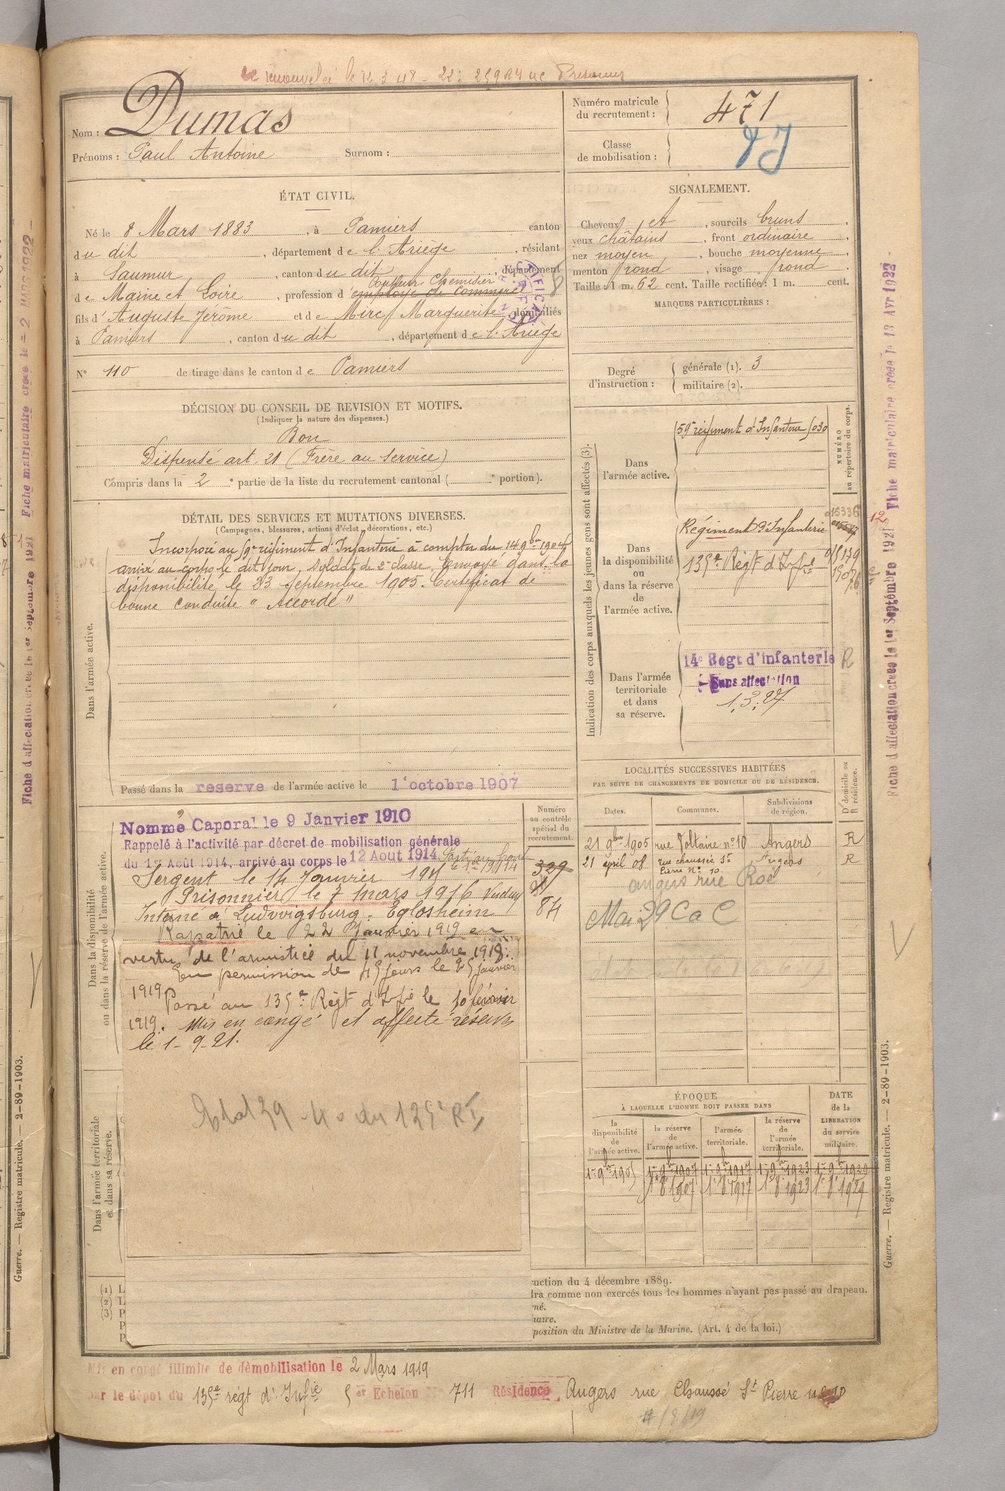 Nom : Dumas
Prénoms : Paul Antoine Surnom :
Numéro matricule du recrutement : 471
Classe de mobilisation :
ÉTAT CIVIL.
Né le 8 Mars 1883, à Pamiers canton
du dit, département de l'Ariège, résidant
à Saumur, canton du dit, département
de Maine et Loire, profession d'employé de commerce
fils d'Auguste Jerome et de Mirc, Marguerite domiciliés
à Pamiers, canton du dit, département de l'Ariège
N° 110 de tirage dans le canton de Pamiers
SIGNALEMENT.
Cheveux et, sourcils bruns,
yeux châtains, front ordinaire
nez moyen, bouche moyenne
menton rond, visage rond
Taille : 1 m. 62 cent. Taille rectifiée : 1 m. cent.
MARQUES PARTICULIÈRES :
Degré d'instruction : générale (1). 3
militaire (2).
DÉCISION DU CONSEIL DE REVISION ET MOTIFS.
(Indiquer la nature des dispenses.)
Bon
Dispensé art. 21 (Frère au service)
Compris dans la 2e partie de la liste du recrutement cantonal ( e portion).
DÉTAIL DES SERVICES ET MUTATIONS DIVERSES.
(Campagnes, blessures, actions d'éclat, décorations, etc.)
Incorporé au 59e régiment d'Infanterie à compter du 14 9bre 1904
arrivé au corps le dit jour, soldat de 2e classe. Envoyé dans la
disponibilité le 23 septembre 1905. Certificat de
bonne conduite "Accordé"
Dans l'armée active.
Passé dans la reserve de l'armée active le 1er octobre 1907
Indication des corps auxquels les jeunes gens sont affectés (3).
NUMÉRO au répertoire du corps.
Dans l'armée active.
59e régiment d'Infanterie
Dans la disponibilité ou dans la réserve de l'armée active.
Régiment d'Infanterie
135e Régt d'Infie
Dans l'armée territoriale et dans sa réserve.
14e Régt d'infanterie R
Sans affectation
1.3.27
Dans la disponibilité ou dans la réserve de l'armée active.
Nommé Caporal le 9 Janvier 1910
Rappelé à l'activité par décret de mobilisation générale
du 1er Août 1914, arrivé au corps le 12 Août 1914
Sergent le 14 Janvier
Prisonnier le 7 mars 1916
Interné à Ludvigsburg. Eglosheim
Rapatrié le 22 Janvier 1919 en
vertu de l'armistice du 11 novembre 1918.
En permission de 45 jours le 25 Janvier
1919
Passé au 135e Régt d'Infie le 10 février
1919. Mis en congé et affecté réserve
le 1-9-21.
du 135e RI
Numéro au contrôle spécial du recrutement.
84
LOCALITÉS SUCCESSIVES HABITÉES
PAR SUITE DE CHANGEMENTS DE DOMICILE OU DE RÉSIDENCE.
Dates. Communes. Subdivisions de région. D domicile ou R résidence.
21 9bre 1905 rue Voltaire n° 10 Angers R
21 april 08 rue chaussée St Pierre N° 10 Angers R
angers rue Roë
Mai 29 C a C
ÉPOQUE
À LAQUELLE L'HOMME DOIT PASSER DANS
DATE de la LIBÉRATION du service militaire.
la disponibilité de l'armée active.
la réserve de l'armée active.
l'armée territoriale.
la réserve de l'armée territoriale.
Dans l'armée territoriale et dans sa réserve.
(1) L
(2) L
(3) P
P
P
uction du 4 décembre 1889.
dra comme non exercés tous les hommes n'ayant pas passé au drapeau.
né.
uaire.
position du Ministre de la Marine. (Art. 4 de la loi.)
Mis en congé illimité de démobilisation le 2 Mars 1919
par le dépot du 135e régt d'Infie 5er Echelon N° 711 Résidence Angers rue Chaussé St Pierre
Guerre. — Registre matricule. — 2-89-1903.
Fiche d'affectation créée le 1er Septembre 1921 Fiche matriculaire créée le 13 Avr 1922
Fiche d'affectation créée le 1er Septembre 1921 Fiche matriculaire créée le
Guerre. — Registre matricule. — 2-89-1903.